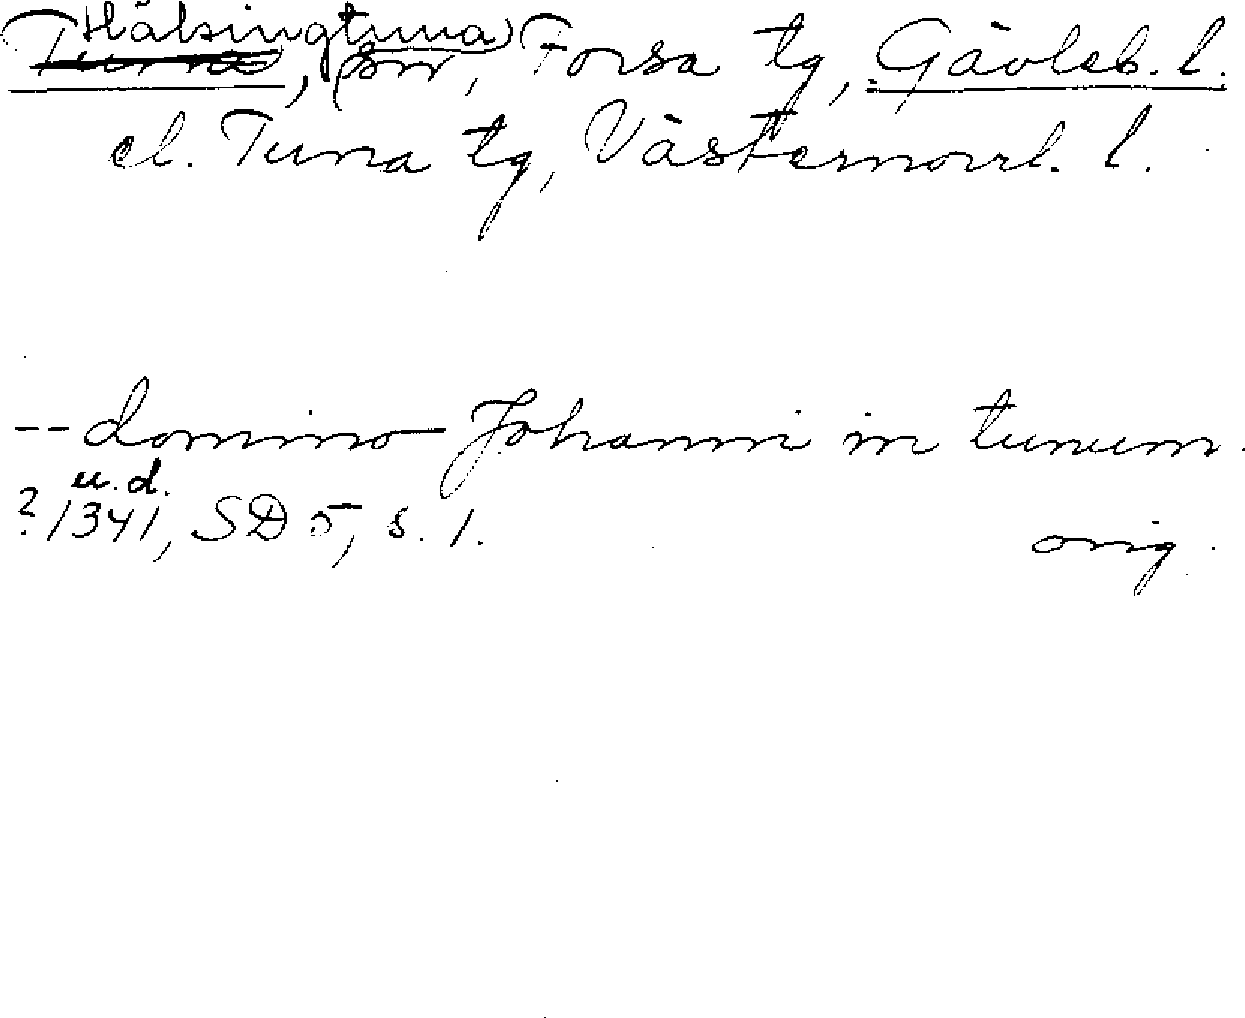 Hälsingtuna
Tuna, sn, Forsa tg, Gävleb. l.
el. Tuna tg, Västernorrl. l.
-- domino Johanni in tunum.
u. d.
? 1341, SD 5, s. 1.
orig.